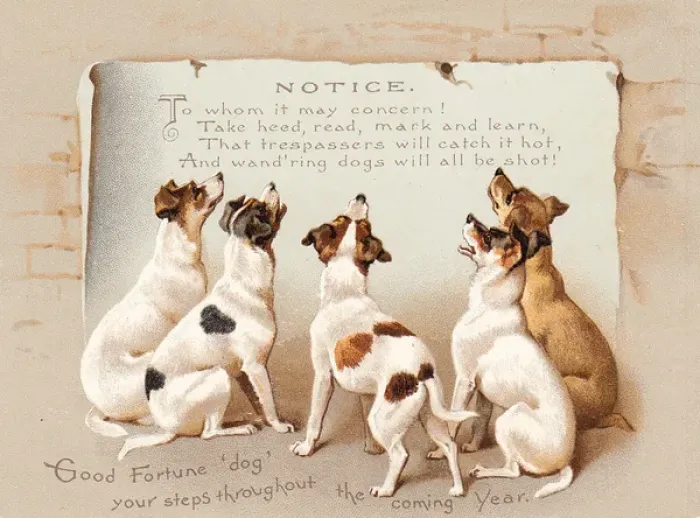 NOTICE.
To whom it may concern!
Take heed, read, mark and learn,
That trespassers will catch it hot,
And wand'ring dogs will all be shot!
Good Fortune 'dog'
your steps throughout the coming Year.